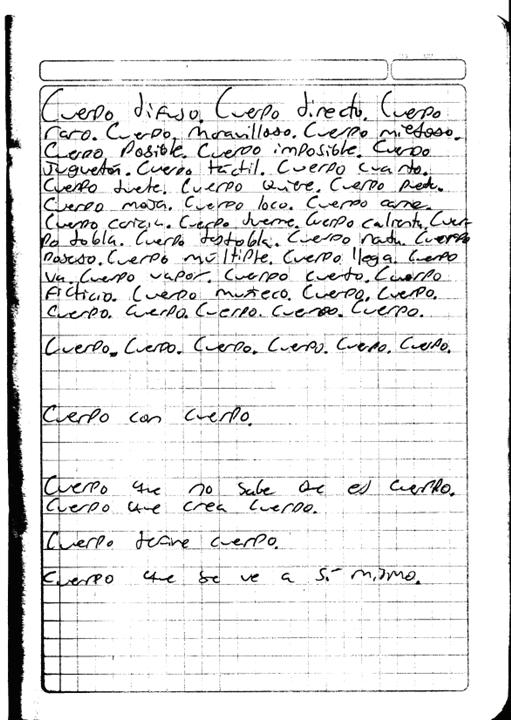 Cuerpo difuso. Cuerpo directo. Cuerpo
raro. Cuerpo. maravilloso. Cuerpo miedoso.
Cuerpo posible. Cuerpo imposible. Cuerpo
juguetón. Cuerpo táctil. Cuerpo cuarto.
Cuerpo duele. Cuerpo quiere. Cuerpo puede.
Cuerpo moja. Cuerpo loco. Cuerpo carne.
Cuerpo caricia. Cuerpo duerme. Cuerpo calienta. Cuer-
po dobla. Cuerpo desdobla. Cuerpo nada. Cuerpo
poseso. Cuerpo múltiple. Cuerpo llega. Cuerpo
va. Cuerpo vapor. Cuerpo cuerdo. Cuerpo
ficticio. Cuerpo muñeco. Cuerpo. Cuerpo.
Cuerpo. Cuerpo. Cuerpo. Cuerpo. Cuerpo.
Cuerpo. Cuerpo. Cuerpo. Cuerpo. Cuerpo. Cuerpo.
Cuerpo con cuerpo.
Cuerpo que no sabe que es cuerpo.
Cuerpo que crea cuerpo.
Cuerpo define cuerpo.
Cuerpo que se ve a sí mismo.